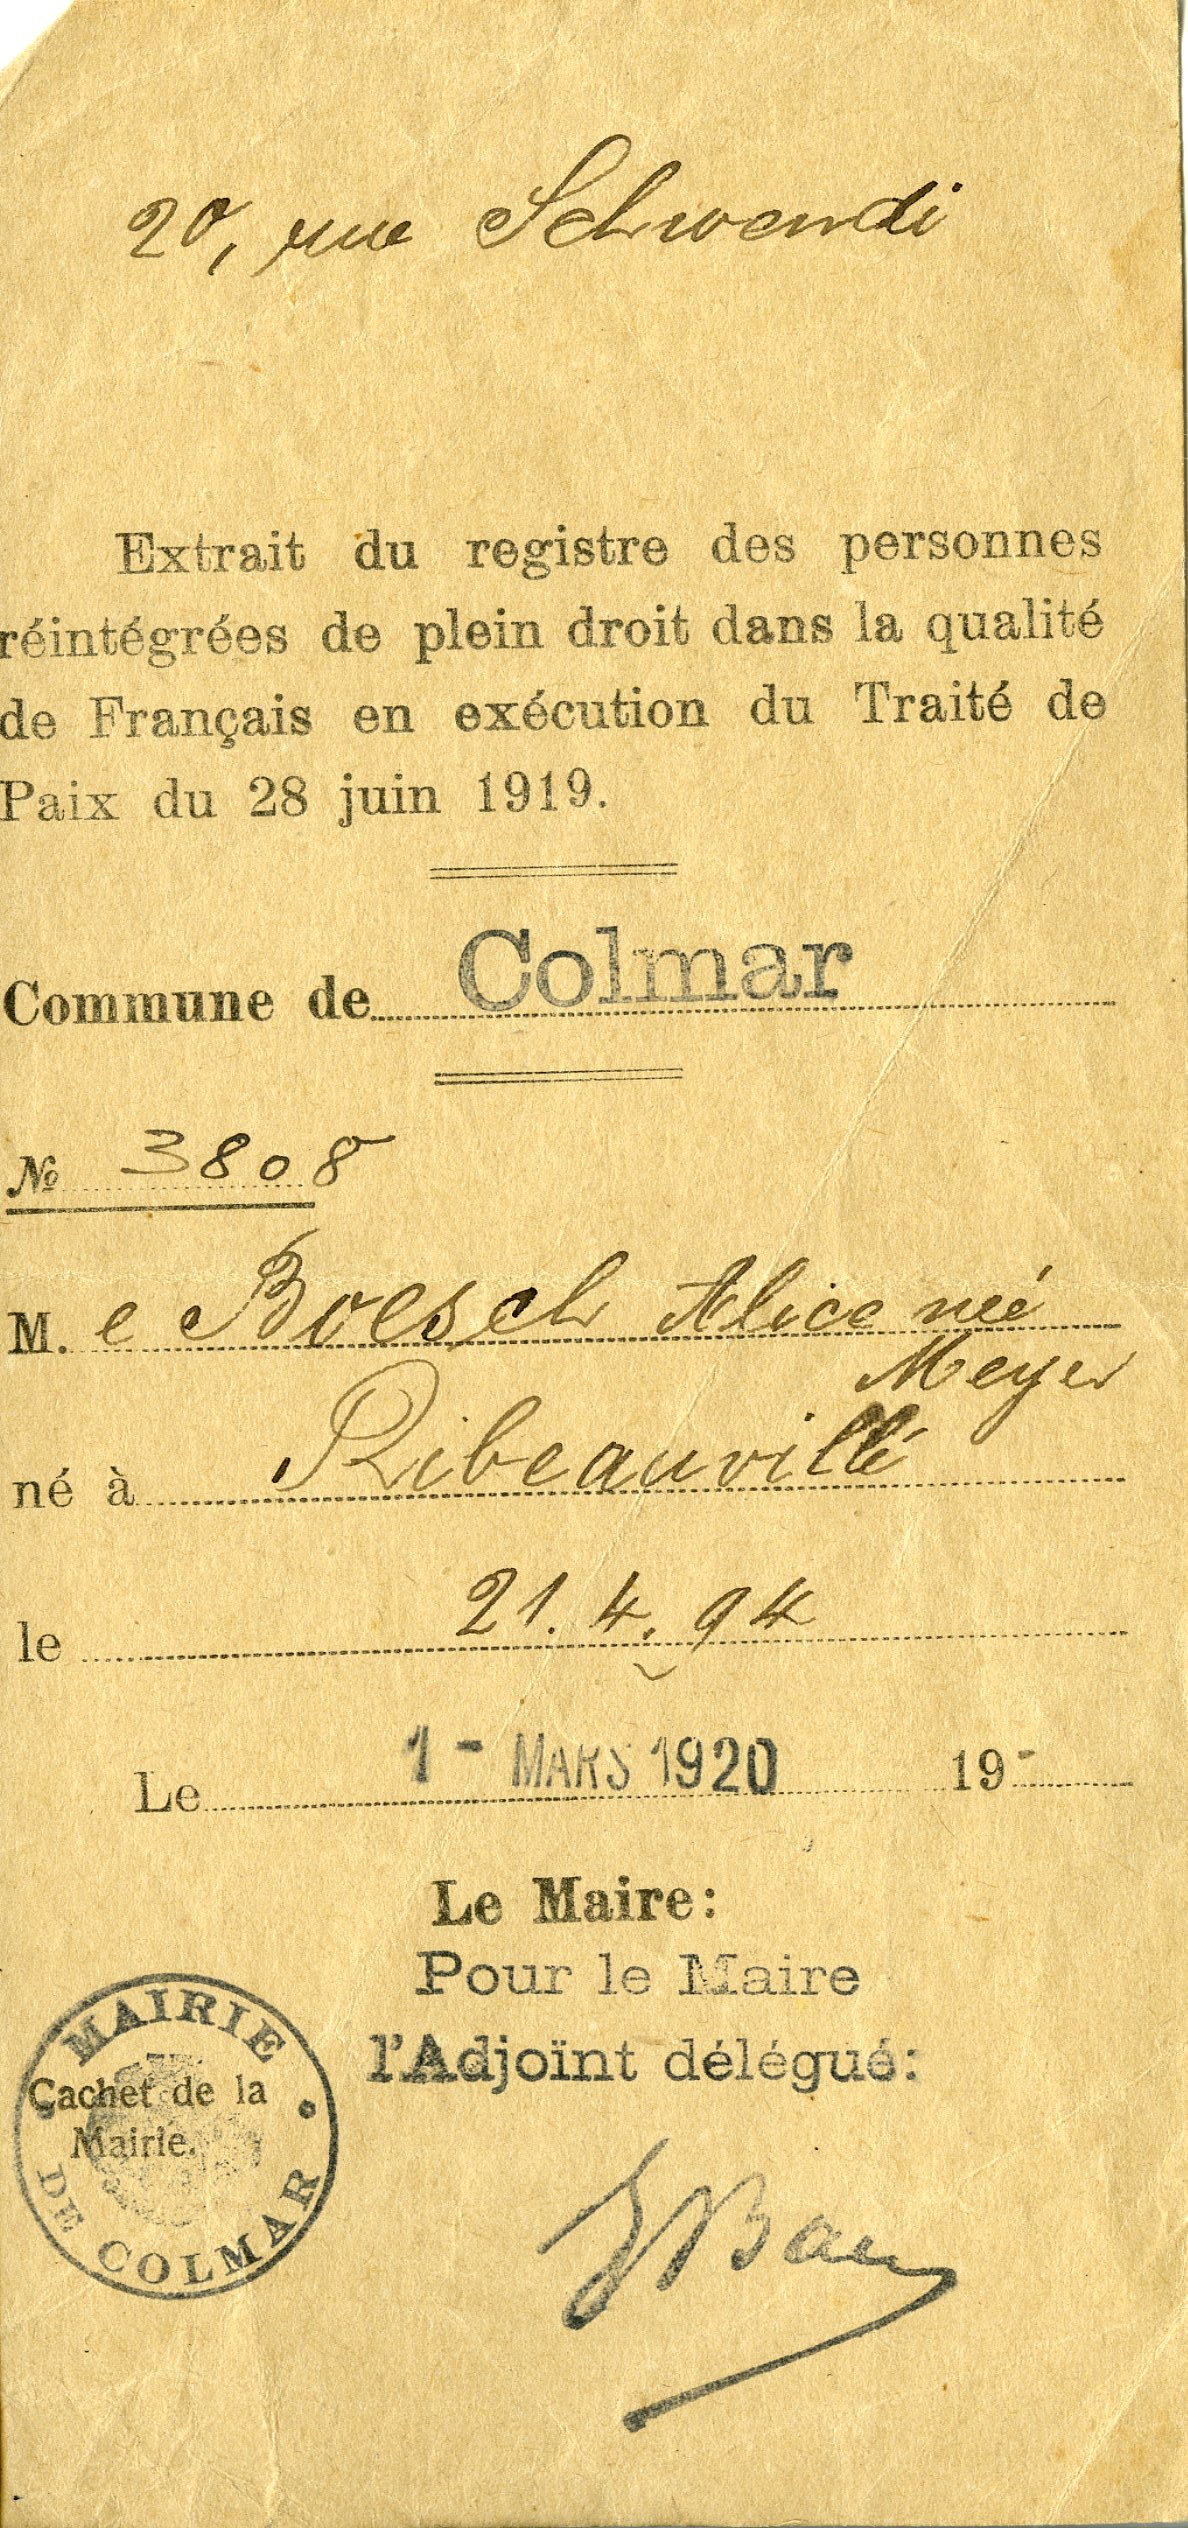 20, rue Schwendi
Extrait du registre des personnes
réintégrées de plein droit dans la qualité
de Français en exécution du Traité de
Paix du 28 juin 1919.
Commune de Colmar
No 3808
M. e Boesch Alice née
Meyer
né à Ribeauvillé
le 21. 4. 94
Le 1 - MARS 1920 19-
Le Maire:
Pour le Maire
l'Adjoïnt délégué:
MAIRIE
Cachet de la
Mairie.
DE COLMAR